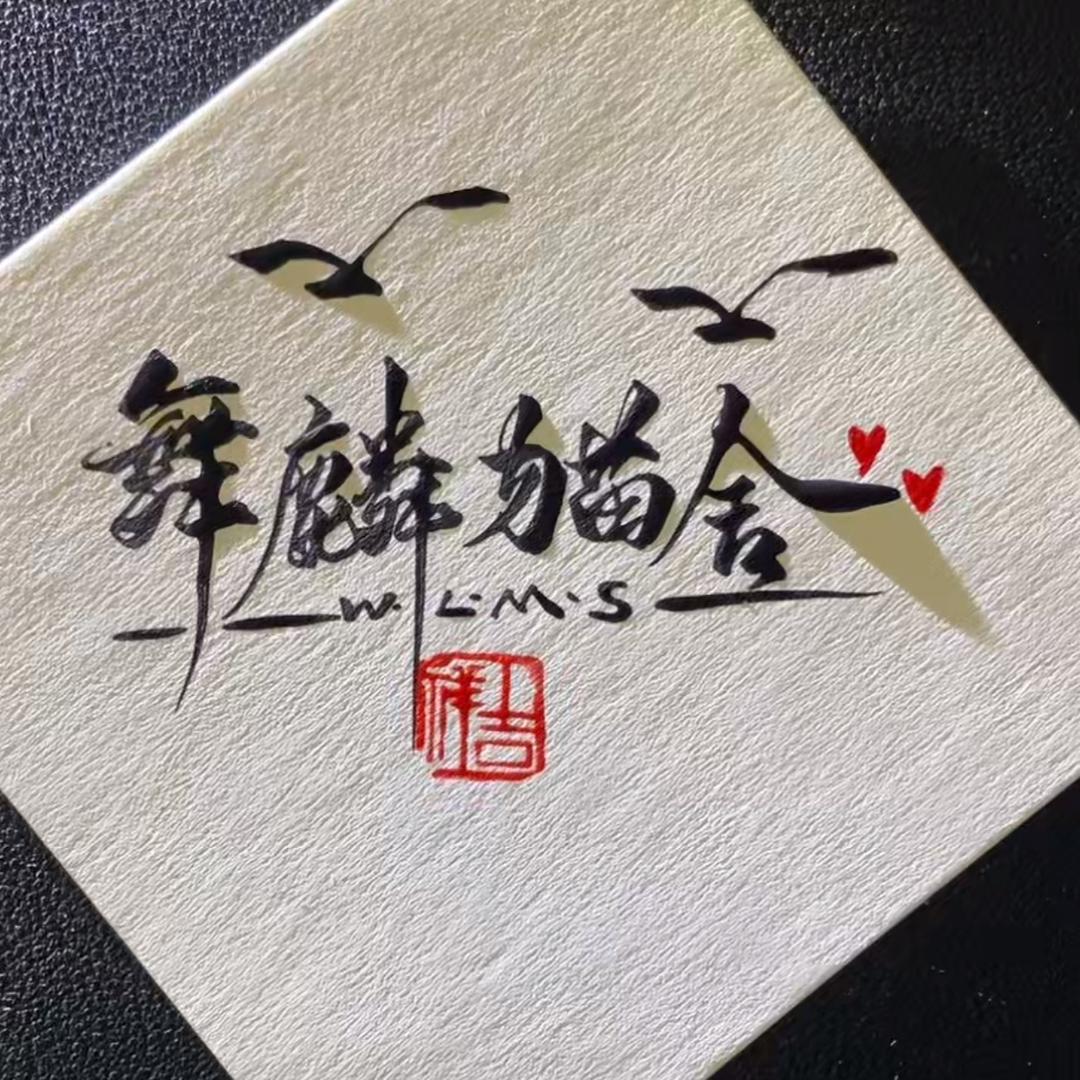 舞麟猫舍
W·L·M·S
吉祥